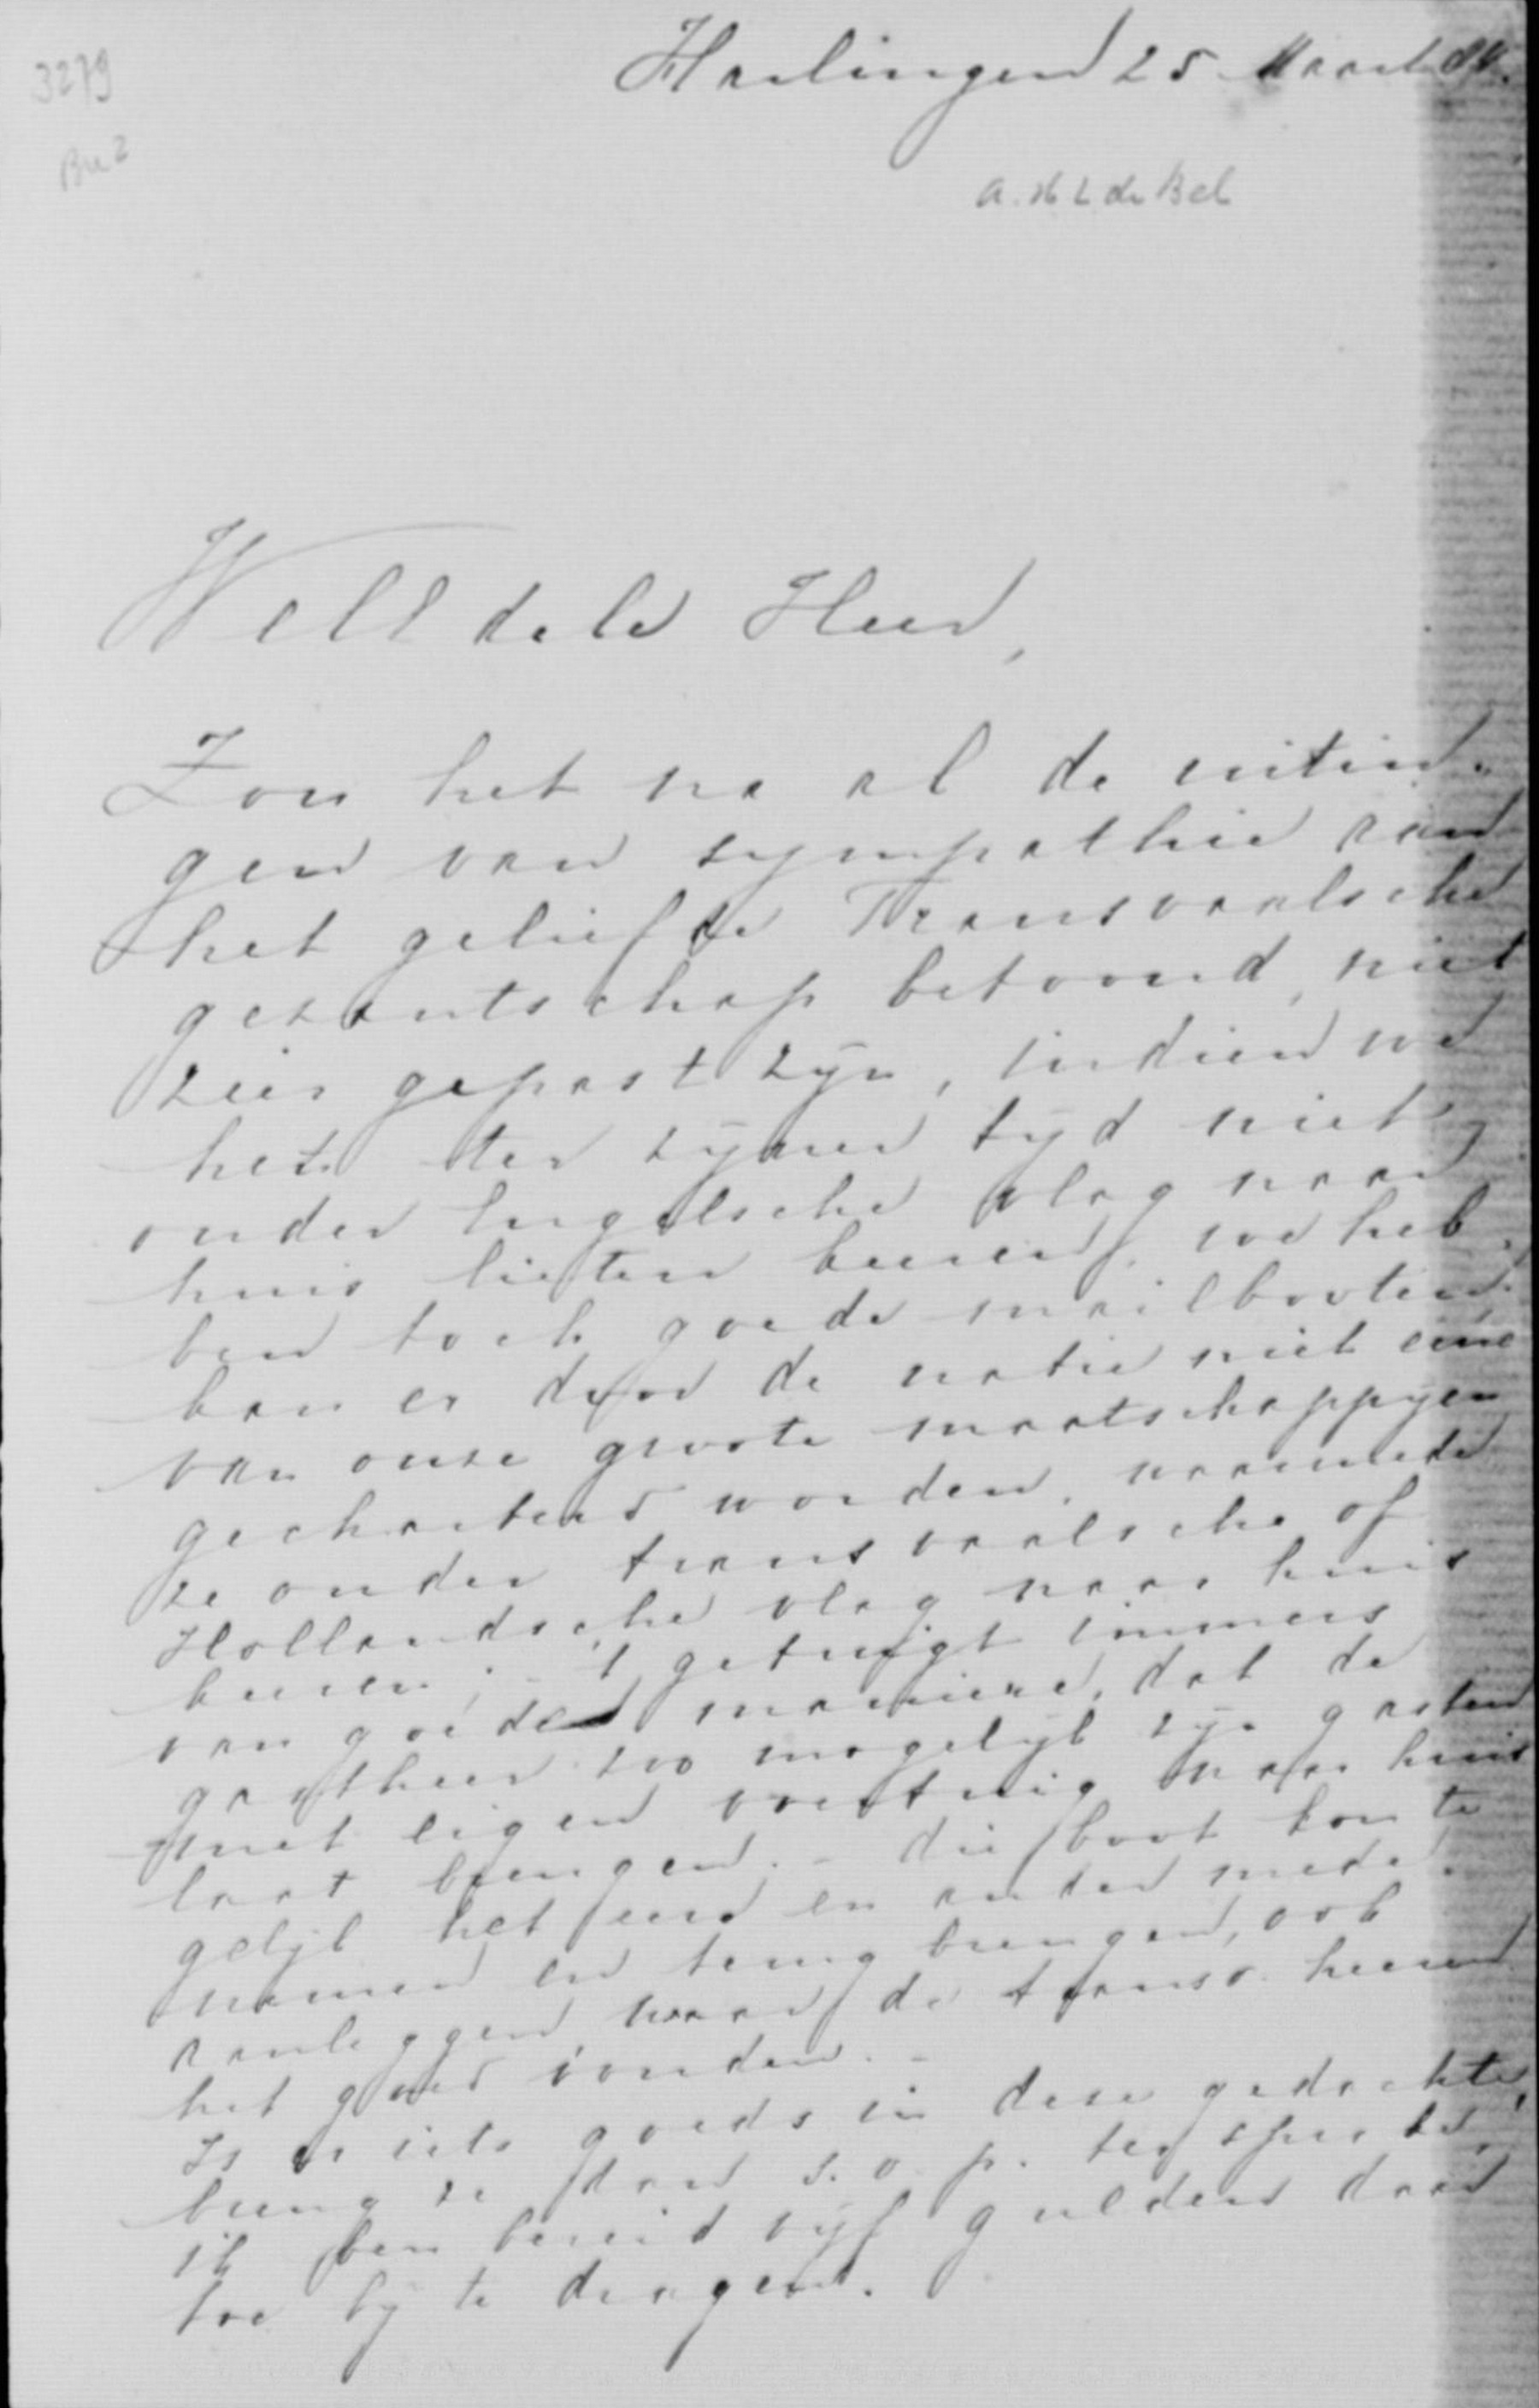 3279
Harlingen 25 Maart 84.
Bu 2
a. H L de Bel
WelEdele Heer,
Zou het na al de uitin-
gen van sympathie aan
het geliefde Transvaalsche
gezantschap betoond, niet
zeer gepast zyn, indien we
het ter zyner tyd niet
onder Engelsche vlag naar
huis lieten keeren, we heb-
ben toch goede mailbooten.
kan er door de natie niet eene
van onze groote maatschappyen
gecharterd worden, waarmede
ze onder transvaalsche of
Hollandsche vlag naar huis
keeren; - 't getuigt immers
van goede manieren, dat de
gastheer zoo mogelyk zyn gasten
met eigen voertuig naar huis
laat brengen. - die boot kon te
gelyk het een en ander mede
nemen en terug brengen, ook
aanleggen waar de transv. heeren
het goed vonden. -
Is er iets goeds in deze gedachte,
breng ze dan s.v.p. ter spra ke,
ik ben bereid vyf gulden daar
toe by te dragen.